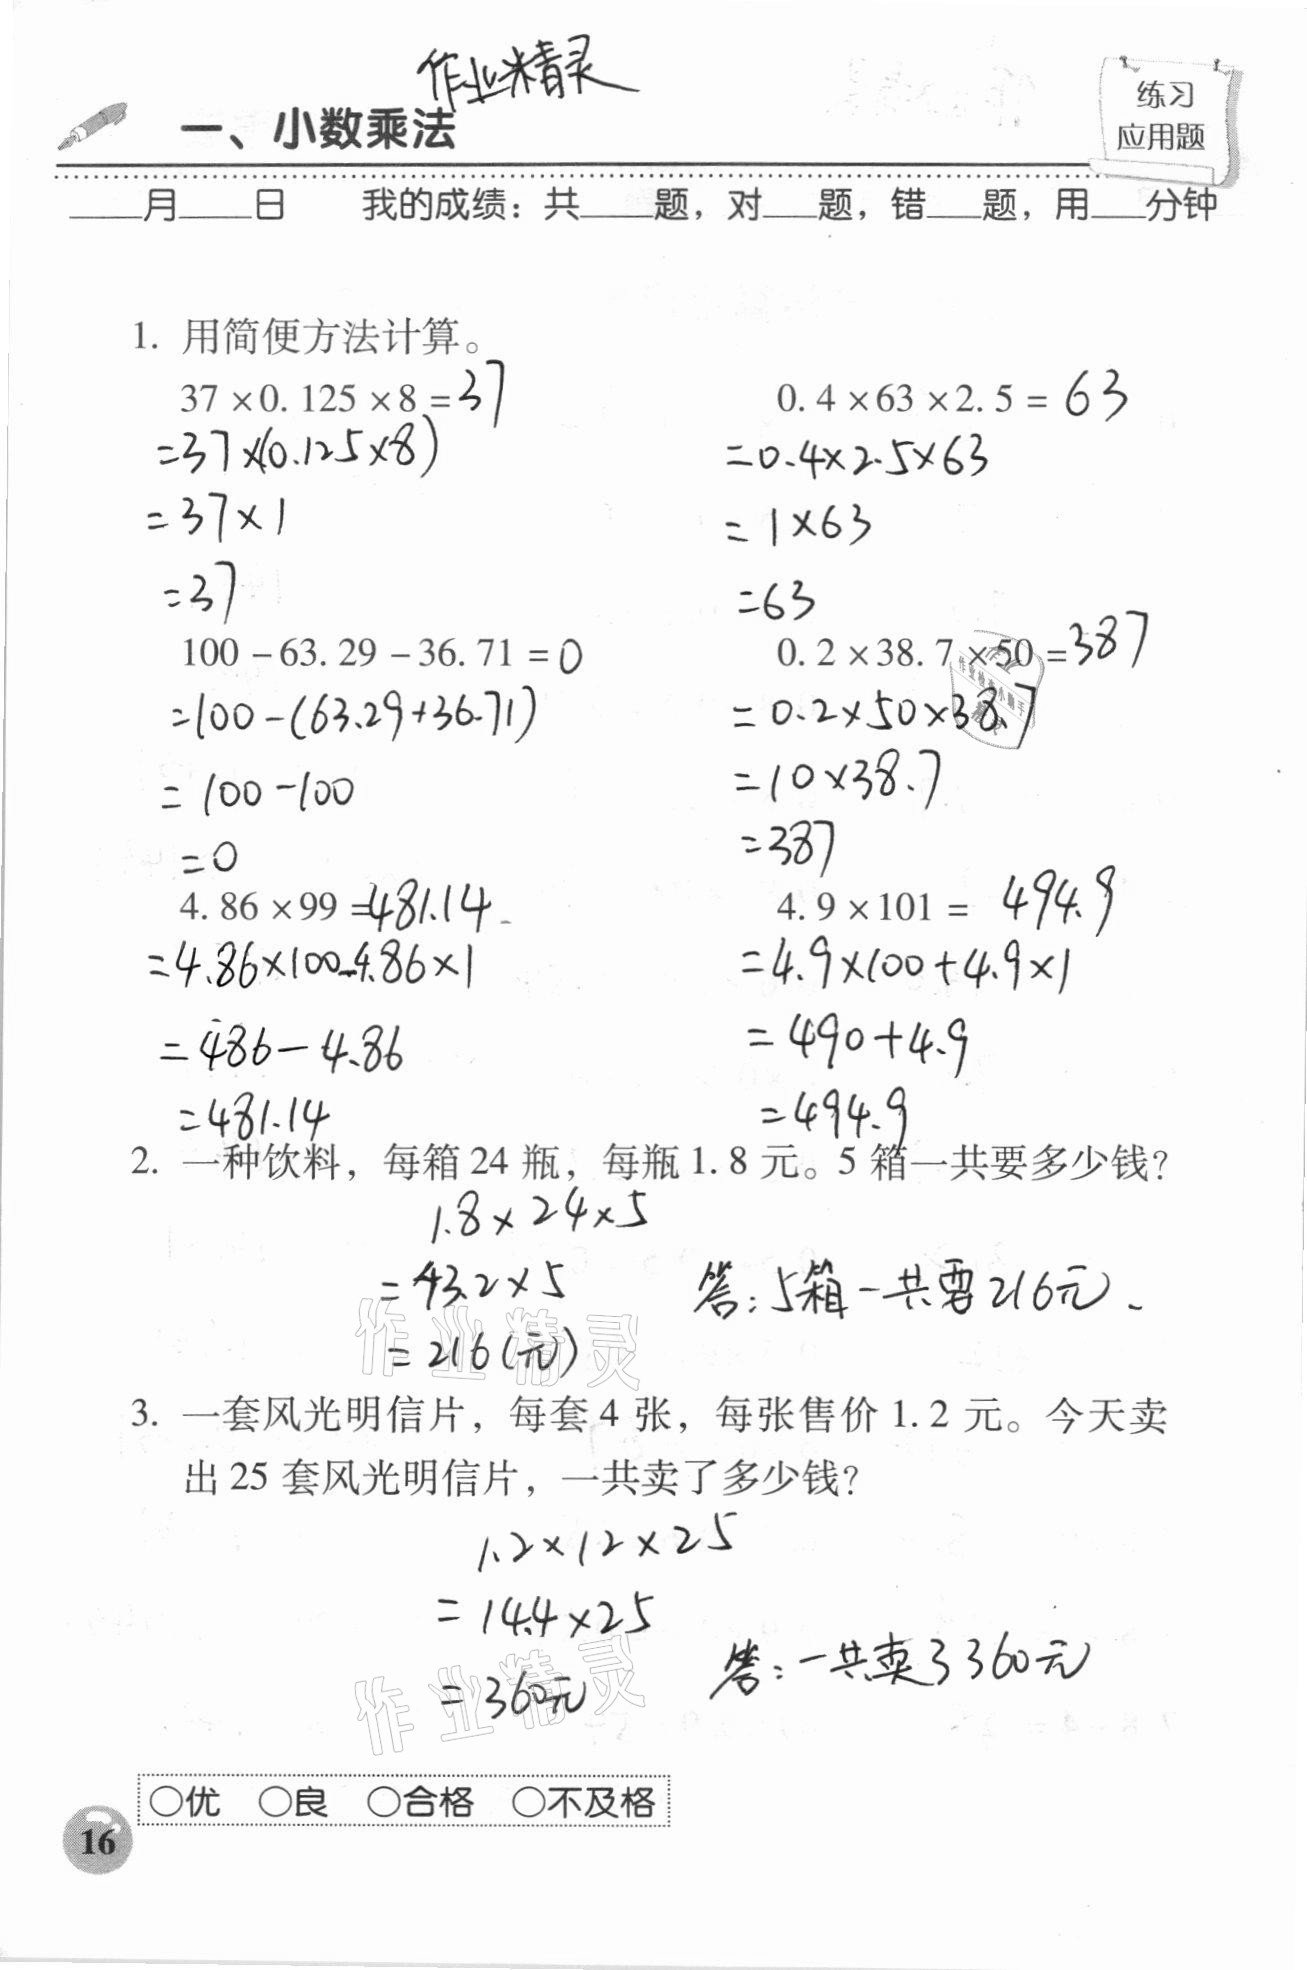 作业精灵
一、小数乘法
练习
应用题
____月____日 我的成绩：共____题，对___题，错___题，用___分钟
1. 用简便方法计算。
37×0.125×8=37 0.4×63×2.5=63
=37×(0.125×8) =0.4×2.5×63
=37×1 =1×63
=37 =63
100-63.29-36.71=0 0.2×38.7×50=387
=100-(63.29+36.71) =0.2×50×38.7
=100-100 =10×38.7
=0 =387
4.86×99=481.14 4.9×101=494.9
=4.86×100-4.86×1 =4.9×100+4.9×1
=486-4.86 =490+4.9
=481.14 =494.9
2. 一种饮料，每箱24瓶，每瓶1.8元。5箱一共要多少钱？
1.8×24×5
=43.2×5 答：5箱一共要216元.
=216(元)
作业精灵
3. 一套风光明信片，每套4张，每张售价1.2元。今天卖
出25套风光明信片，一共卖了多少钱？
1.2×12×25
=14.4×25
=360元 答：一共卖了360元
作业精灵
○优 ○良 ○合格 ○不及格
16